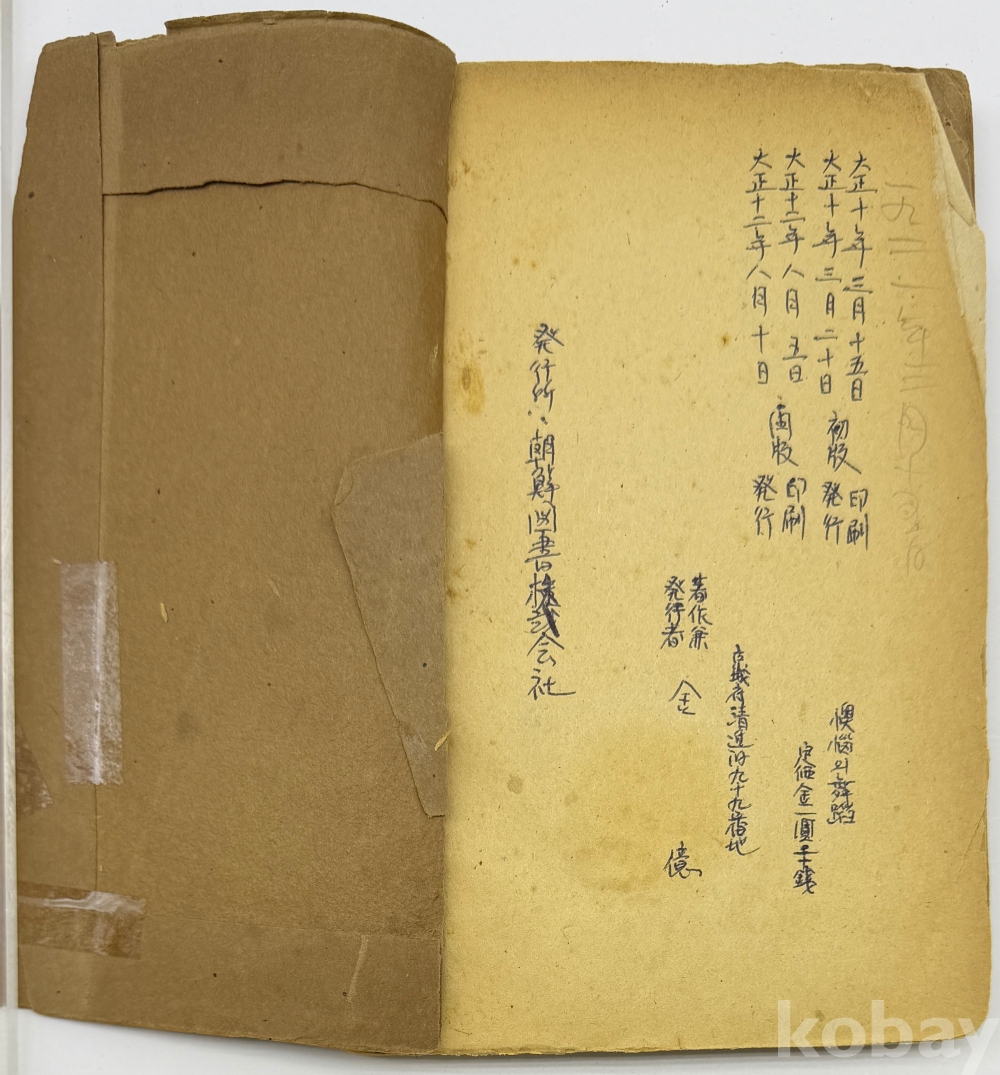 大正十年三月十五日 印刷
大正十年三月二十日 初版 発行
大正十二年八月五日 印刷
大正十二年八月十日 再版 発行
懊悩의舞蹈
定価金一圓五十銭
九十九番地
著作兼
発行者 金 億
発行所、朝鮮図書株式会社
kobay